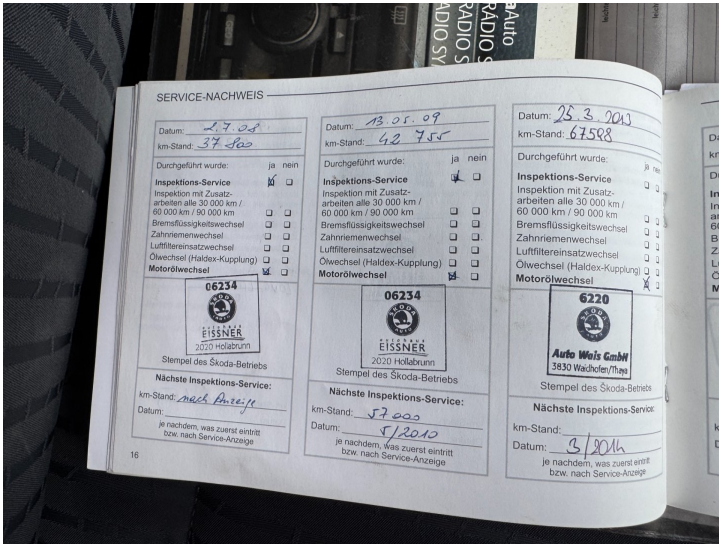 Auto
RÁDIO
RÁDIO S
RADIO S
RADIO SY
SERVICE-NACHWEIS
Datum: 2.7.08
km-Stand: 37 800
Durchgeführt wurde: ja nein
Inspektions-Service
Inspektion mit Zusatz-
arbeiten alle 30 000 km /
60 000 km / 90 000 km
Bremsflüssigkeitswechsel
Zahnriemenwechsel
Luftfiltereinsatzwechsel
Ölwechsel (Haldex-Kupplung)
Motorölwechsel
06234
ŠKODA
AUTO
autohaus
EISSNER
2020 Hollabrunn
Stempel des Škoda-Betriebs
Nächste Inspektions-Service:
km-Stand: nach Anzeige
Datum:
je nachdem, was zuerst eintritt
bzw. nach Service-Anzeige
16
Datum: 13.05.09
km-Stand: 42 755
Durchgeführt wurde: ja nein
Inspektions-Service
Inspektion mit Zusatz-
arbeiten alle 30 000 km /
60 000 km / 90 000 km
Bremsflüssigkeitswechsel
Zahnriemenwechsel
Luftfiltereinsatzwechsel
Ölwechsel (Haldex-Kupplung)
Motorölwechsel
06234
ŠKODA
AUTO
autohaus
EISSNER
2020 Hollabrunn
Stempel des Škoda-Betriebs
Nächste Inspektions-Service:
km-Stand: 57 000
Datum: 5/2010
je nachdem, was zuerst eintritt
bzw. nach Service-Anzeige
Datum: 25.3.2013
km-Stand: 67598
Durchgeführt wurde: ja nein
Inspektions-Service
Inspektion mit Zusatz-
arbeiten alle 30 000 km /
60 000 km / 90 000 km
Bremsflüssigkeitswechsel
Zahnriemenwechsel
Luftfiltereinsatzwechsel
Ölwechsel (Haldex-Kupplung)
Motorölwechsel
6220
ŠKODA
AUTO
Auto Wais GmbH
3830 Waidhofen/Thaya
Stempel des Škoda-Betriebs
Nächste Inspektions-Service:
km-Stand:
Datum: 3/2014
je nachdem, was zuerst eintritt
bzw. nach Service-Anzeige